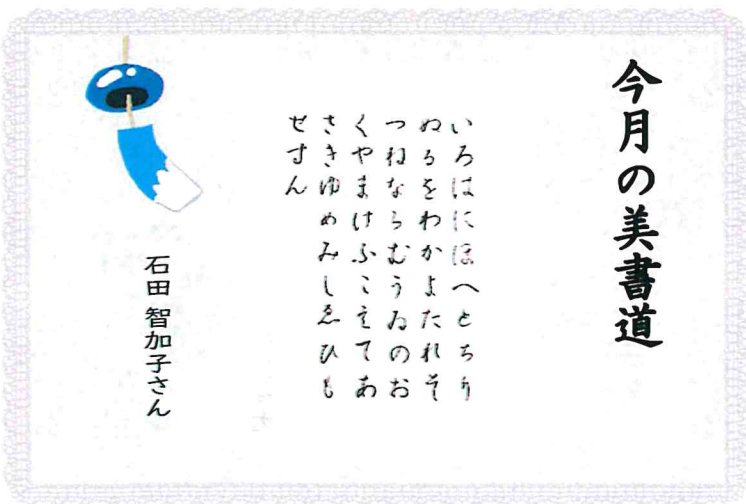 今月の美書道
いろはにほへとちり
ぬるをわかよたれそ
つねならむうゐのお
くやまけふこえてあ
さきゆめみしゑひも
せすん
石田 智加子さん